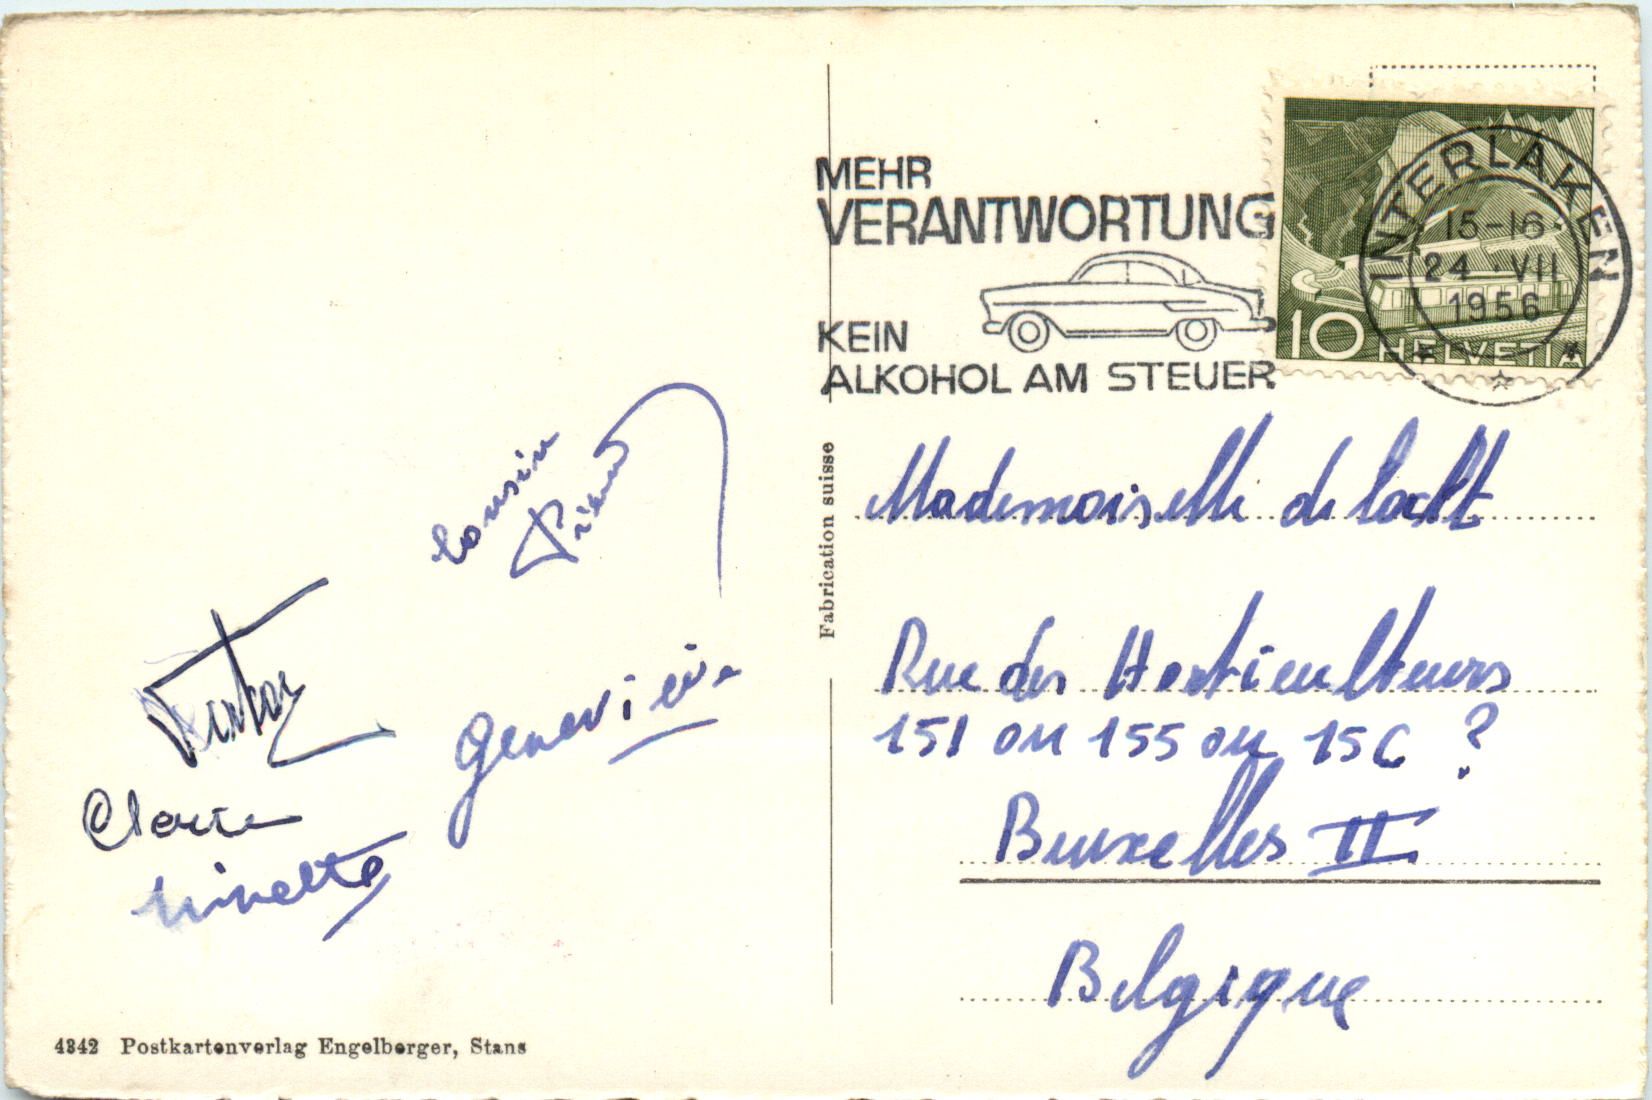 MEHR
VERANTWORTUNG
KEIN
ALKOHOL AM STEUER
INTERLAKEN
15-16
24·VII
1956
10 HELVETIA
Fabrication suisse
Cousin
Geneviève
Claire
Ninette
Mademoiselle de
Rue des Horticulteurs
151 ou 155 ou 156 ?
Bruxelles II
Belgique
4342 Postkartenverlag Engelberger, Stans